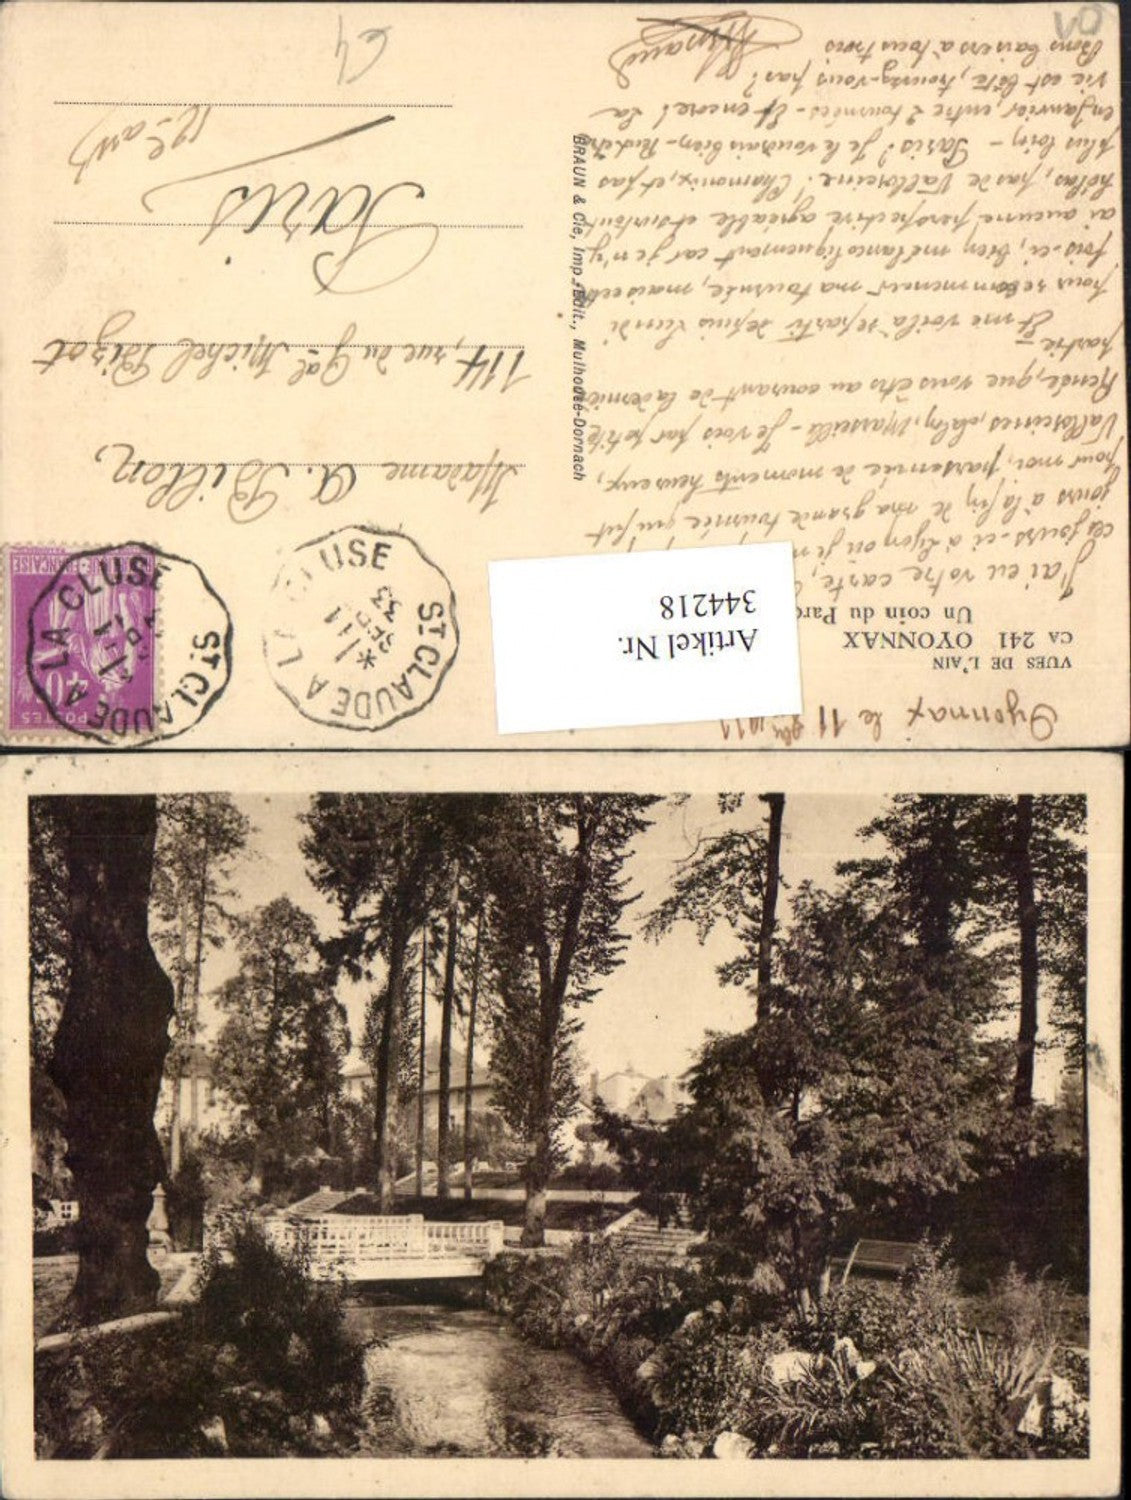 Oyonnax le 11
VUES DE L'AIN
CA 241 OYONNAX
Un coin du Parc
J'ai eu votre carte,
ces jours-ci à Lyon où je
jours à la fin de ma grande tournée qui fut
pour moi, parsemée de moments heureux,
Vallorcines, Marseille - Je vois par
Renée, que vous êtes au courant de la dernière
partie
Et me voilà reparti depuis Lundi
pour recommencer ma tournée, mais cette
fois-ci, bien mélancoliquement car je n'y
ai aucune perspective agréable et surtout
hélas, pas de Vallorcine! Chamonix, et pas
plus loin - Paris? Je le voudrais bien -
en Janvier, entre 2 tournées - Et encore! La
vie est bête, trouvez-vous pas?
Bons baisers à tous trois
BRAUN & Cie, Imp.-Édit., Mulhouse-Dornach
Artikel Nr.
344218
ST CLAUDE A LA CLUSE
*/11
SEP
33
ST CLAUDE A LA CLUSE
POSTES
40c
FRANÇAISE
Madame A. Billon,
114, rue du Gal Michel Bizot
Paris
12e arrt